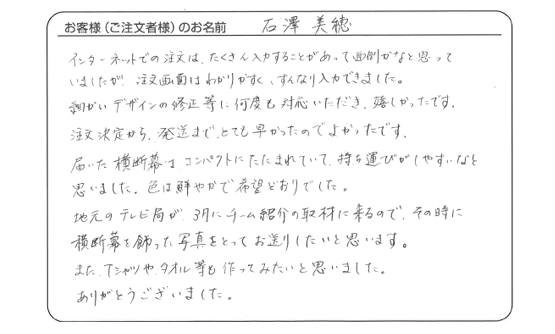 お客様(ご注文者様)のお名前 石澤 美穂
インターネットでの注文は、たくさん入力することがあって面倒かなと思って
いましたが、注文画面はわかりやすく、すんなり入力できました。
細かいデザインの修正等に何度も対応いただき、嬉しかったです。
注文決定から、発送まで、とても早かったのでよかったです。
届いた横断幕はコンパクトにたたまれていて、持ち運びがしやすいなと
思いました。色は鮮やかで希望どおりでした。
地元のテレビ局が、3月にチーム紹介の取材に来るので、その時に
横断幕を飾った写真をとってお送りしたいと思います。
また、Tシャツや、タオル等も作ってみたいと思いました。
ありがとうございました。